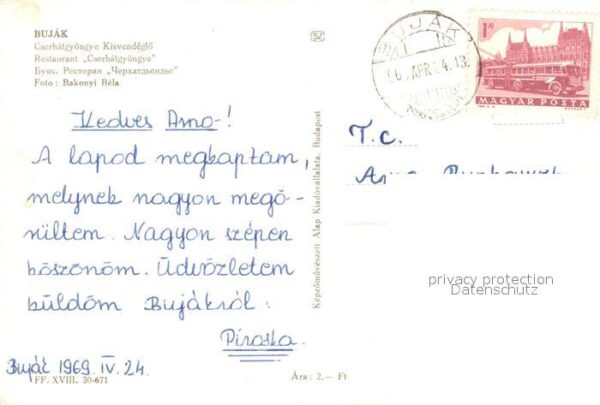 BUJÁK
Cserhátgyöngye Kisvendéglő
Restaurant „Cserhátgyöngye"
Буяк, Ресторан „Черхатдьендье"
Foto: Bakonyi Béla
BUJÁK
APR. 24. 13
1 Ft
MAGYAR POSTA
Kedves Arno-!
A lapod megkaptam,
melynek nagyon megö-
rültem. Nagyon szépen
köszönöm. Üdvözletem
küldöm Bujákról:
Piroska.
Buják 1969. IV. 24.
FF. XVIII. 30-671
Ára: 2,— Ft
Képzőművészeti Alap Kiadóvállalata, Budapest
T. c.
privacy protection
Datenschutz